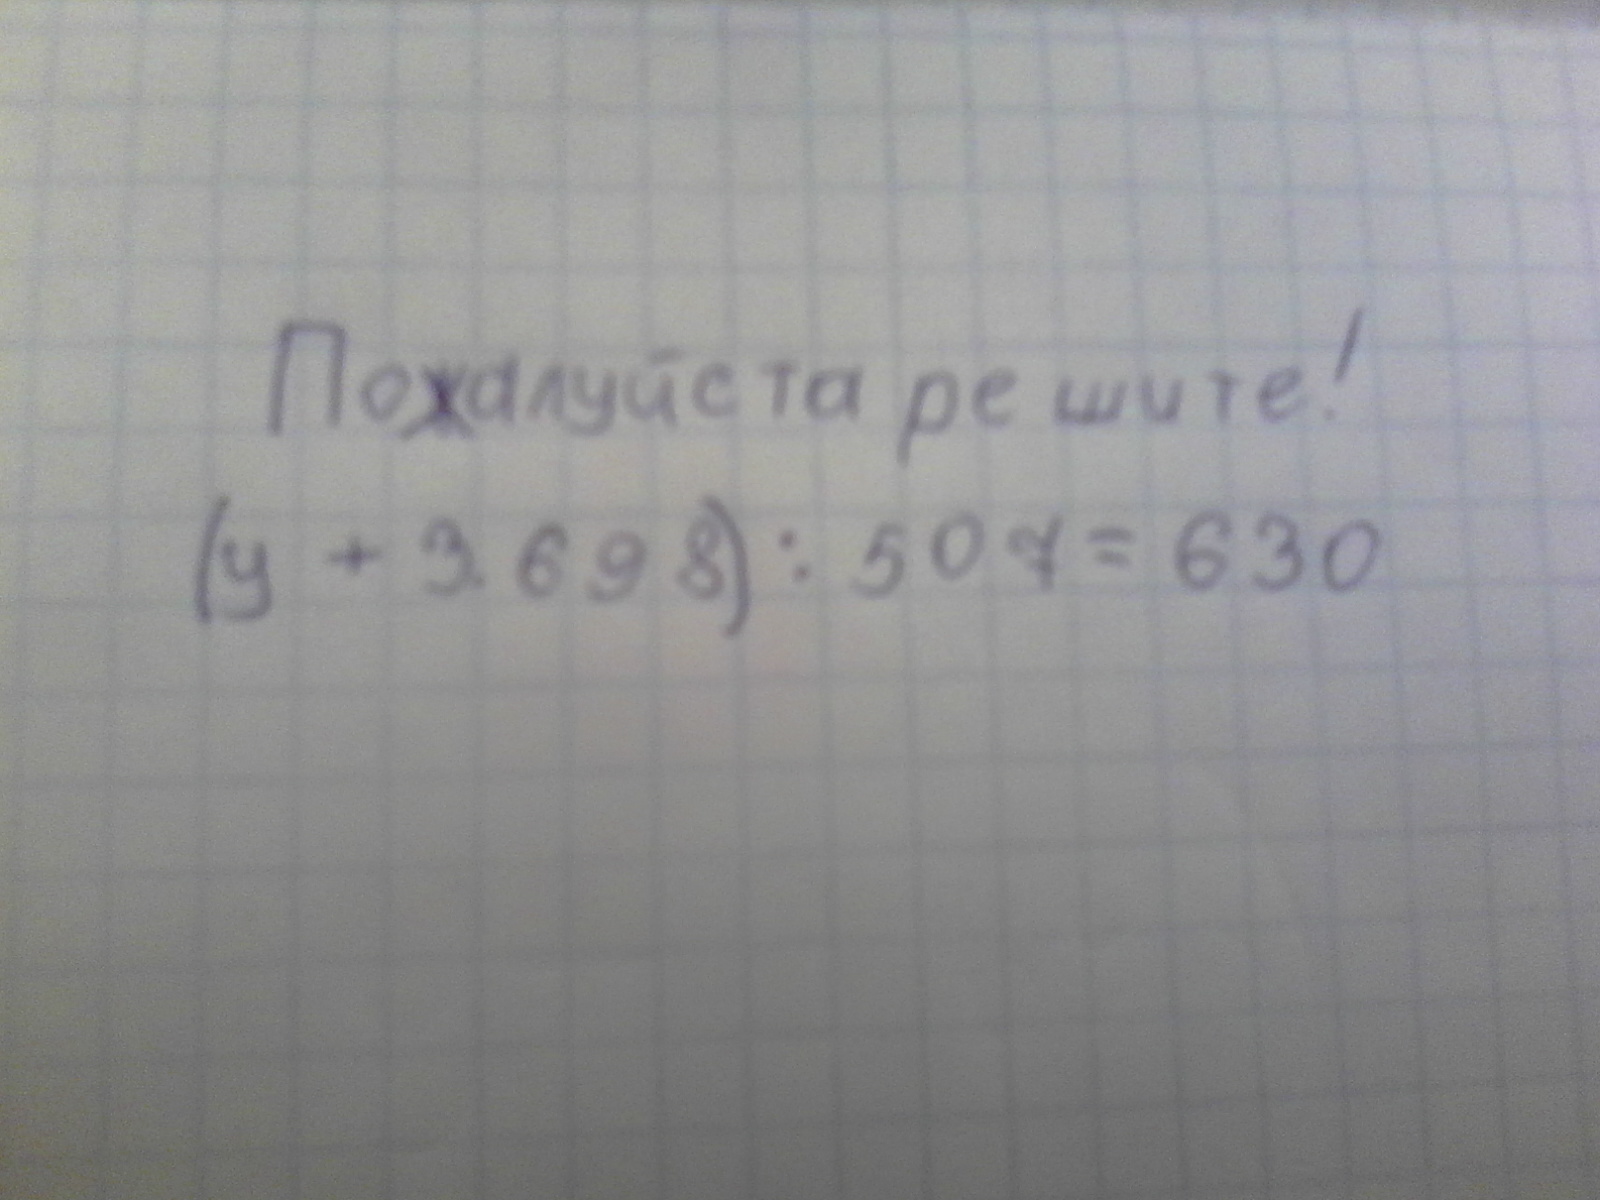 Пожалуйста решите!
(у + 3698) : 507 = 630